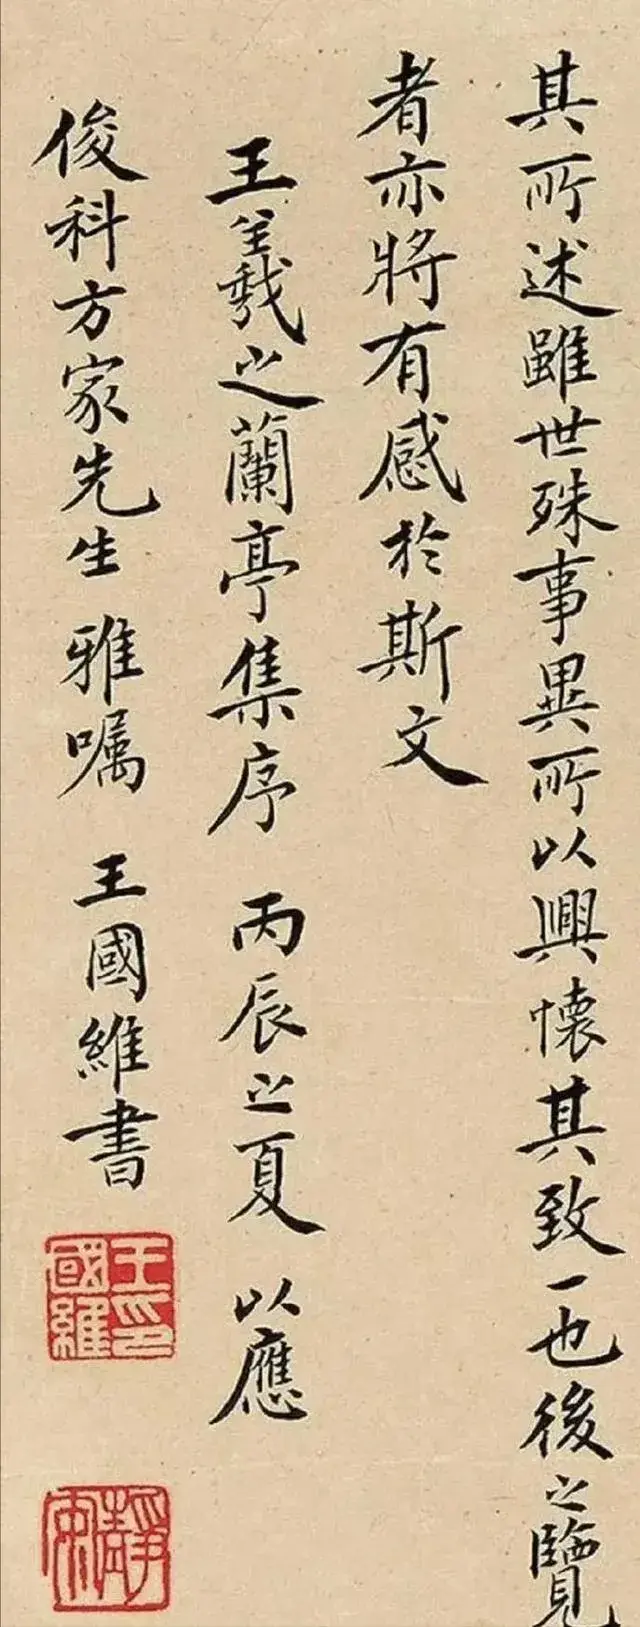 其所述雖世殊事異所以興懷其致一也後之覽
者亦將有感於斯文
王羲之蘭亭集序 丙辰之夏 以應
俊科方家先生 雅嘱 王國維書
王國維印
靜安